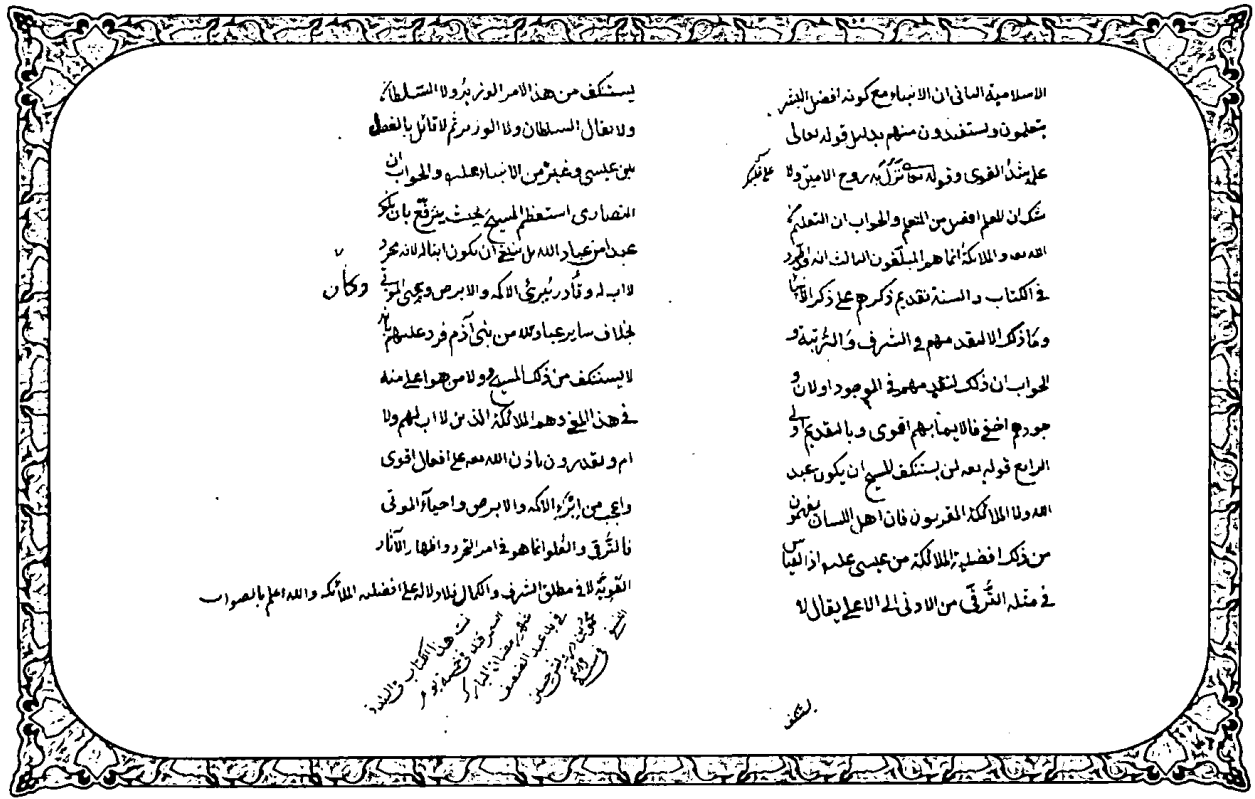 الاسلامية الثانى ان الانبياء مع كونه افضل البشر
يتعلمون ويستفيدون منهم بدليل قوله تعالى
علمه شديد القوى وقوله تعا نزل به روح الامين ولا
على قلبك
شك ان المعلم افضل من المتعلم والجواب ان التعليم
الله تعه والملائكة انما هم المبلغون الثالث انه
فى الكتاب والسنة تقديم ذكرهم على ذكر الانبياء
وما ذلك الا لتقدمهم فى الشرف والرتبة و
الجواب ان ذلك لتقدمهم فى الوجود او لان و
جودهم اخفى فالايمان بهم اقوى وبالتقديم اولى
الرابع قوله تعه لن يستنكف المسيح ان يكون عبد
الله ولا الملائكة المقربون فان اهل اللسان يفهمون
من ذلك افضلية الملائكة من عيسى عله اذ القياس
فى مثله الترقى من الادنى الى الاعلى يقال لا
يستنكف
يستنكف من هذا الامر الوزير ولا السلطان
ولا يقال السلطان ولا الوزير ثم لا قائل بالفصل
بين عيسى وغيره من الانبياء عله والجواب ان
النصارى استعظم المسيح بحيث يترفع بان يكو
عبدا من عباد الله بل ينبغى ان يكون ابنا له لانه مجرد
لا اب له وقادر يبرئ الاكمه والابرص ويحيى الموتى
وكان
بخلاف ساير عباد الله من بنى آدم فرد عليهم بانه
لا يستنكف من ذلك المسيح ولا من هو اعلى منه
فى هذا المعنى وهم الملائكة الذين لا اب لهم ولا
ام ويقدرون باذن الله تعه على افعال اقوى
واعجب من ابراء الاكمه والابرص واحياء الموتى
فالترقى والعلو انما هو فى امر التجرد واظهار الآثار
القوية لا فى مطلق الشرف والكمال فلا دلالة على افضلية الملائكه والله اعلم بالصواب
تمت هذا الكتاب فى البلدة
فى خمسة يوم
شهر رمضان المبارك
فى يد عبد الضعيف
محمود بن درويش
فى سنة